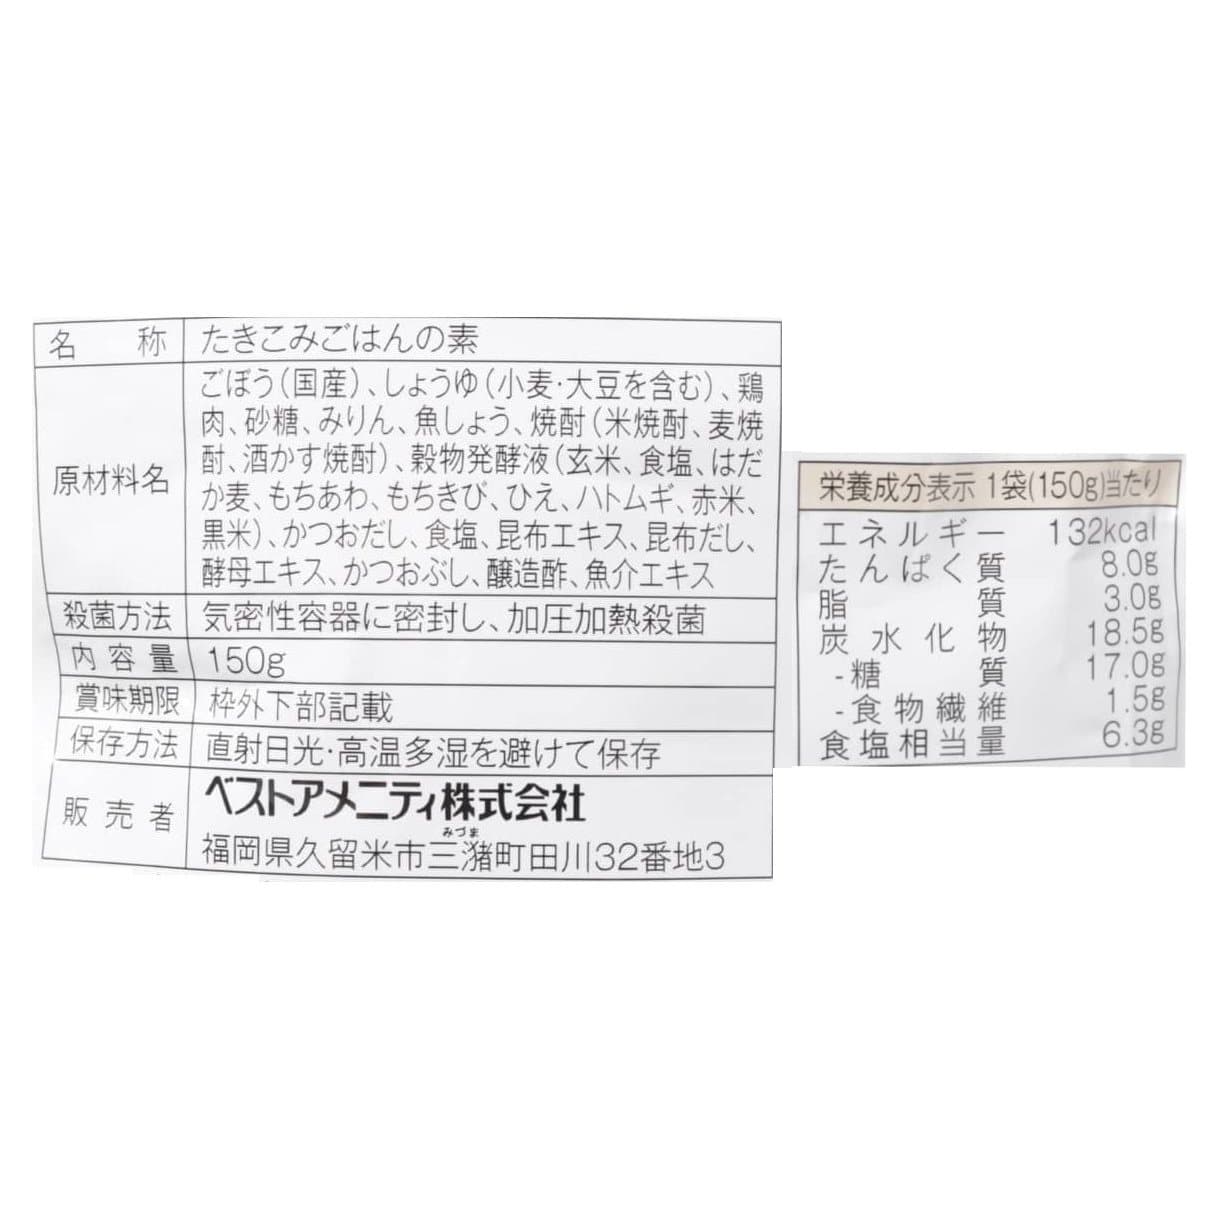 名称 たきこみごはんの素
原材料名 ごぼう(国産)、しょうゆ(小麦・大豆を含む)、鶏
肉、砂糖、みりん、魚しょう、焼酎(米焼酎、麦焼
酎、酒かす焼酎)、穀物発酵液(玄米、食塩、はだ
か麦、もちあわ、もちきび、ひえ、ハトムギ、赤米、
黒米)、かつおだし、食塩、昆布エキス、昆布だし、
酵母エキス、かつおぶし、醸造酢、魚介エキス
殺菌方法 気密性容器に密封し、加圧加熱殺菌
内容量 150g
賞味期限 枠外下部記載
保存方法 直射日光・高温多湿を避けて保存
販売者 ベストアメニティ株式会社
みづま
福岡県久留米市三潴町田川32番地3
栄養成分表示 1袋(150g)当たり
エネルギー 132kcal
たんぱく質 8.0g
脂質 3.0g
炭水化物 18.5g
-糖質 17.0g
-食物繊維 1.5g
食塩相当量 6.3g